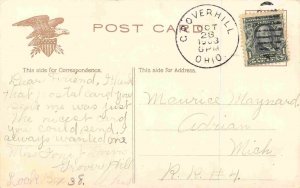 POST CARD
GROVERHILL
OCT
28
1908
6PM
OHIO.
This side for Correspondence.
This side for Address.
Dear Friend, I think
that postal card you
sent me was just
the nicest one
you could send, I
always wanted one
Grover Hill
Lock Box 38.
Maurice Maynard
Adrian
Mich.
R.R.#4